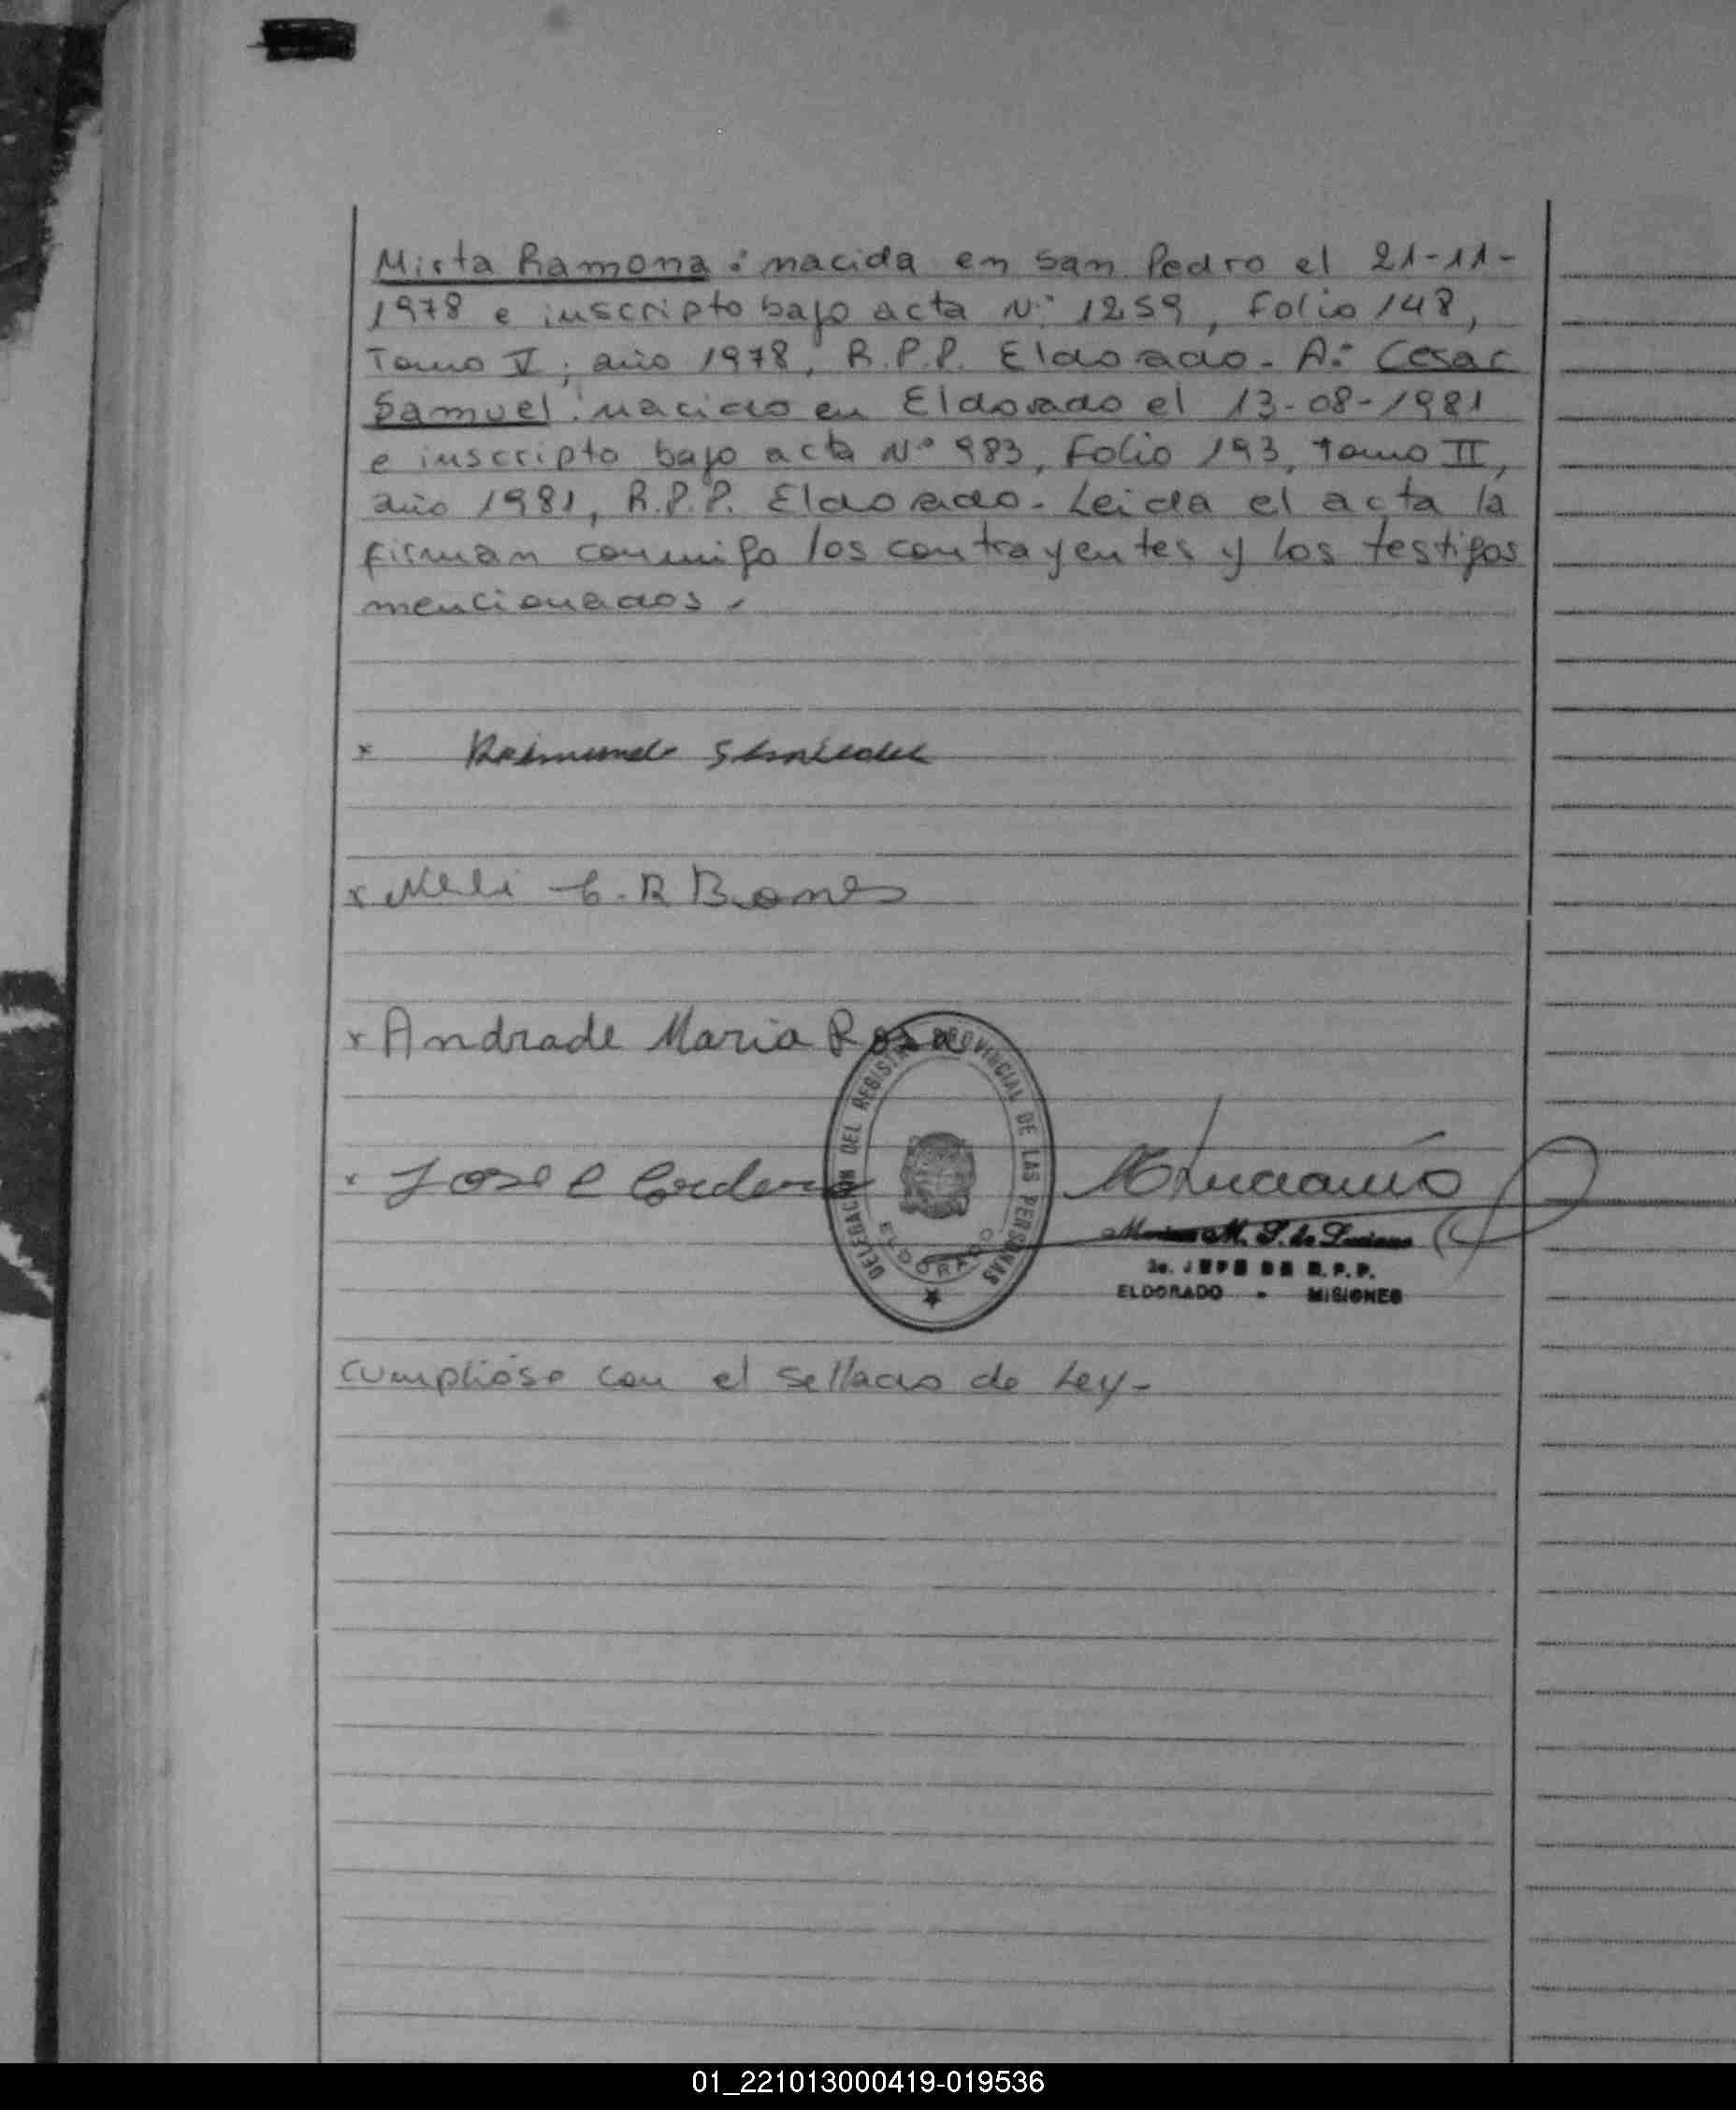 Mirta Ramona: nacida en San Pedro el 21-11-
1978 e inscripto bajo acta Nº 1259, Folio 148,
Tomo V, año 1978, R.P.P. Eldorado. A: Cesar
Samuel: nacido en Eldorado el 13-08-1981
e inscripto bajo acta Nº 983, Folio 193, Tomo II,
año 1981, R.P.P. Eldorado. Leida el acta la
firman conmigo los contrayentes y los testigos
mencionados.
x Raimundo
x Neli C. R Brones
x Andrade Maria Rosa
x Jose C Cordero
DELEGACION DEL REGISTRO PROVINCIAL DE LAS PERSONAS
ELDORADO
M. S. de Luciano
JEFE DE R.P.P.
ELDORADO - MISIONES
Cumplióse con el sellado de Ley-
01_221013000419-019536